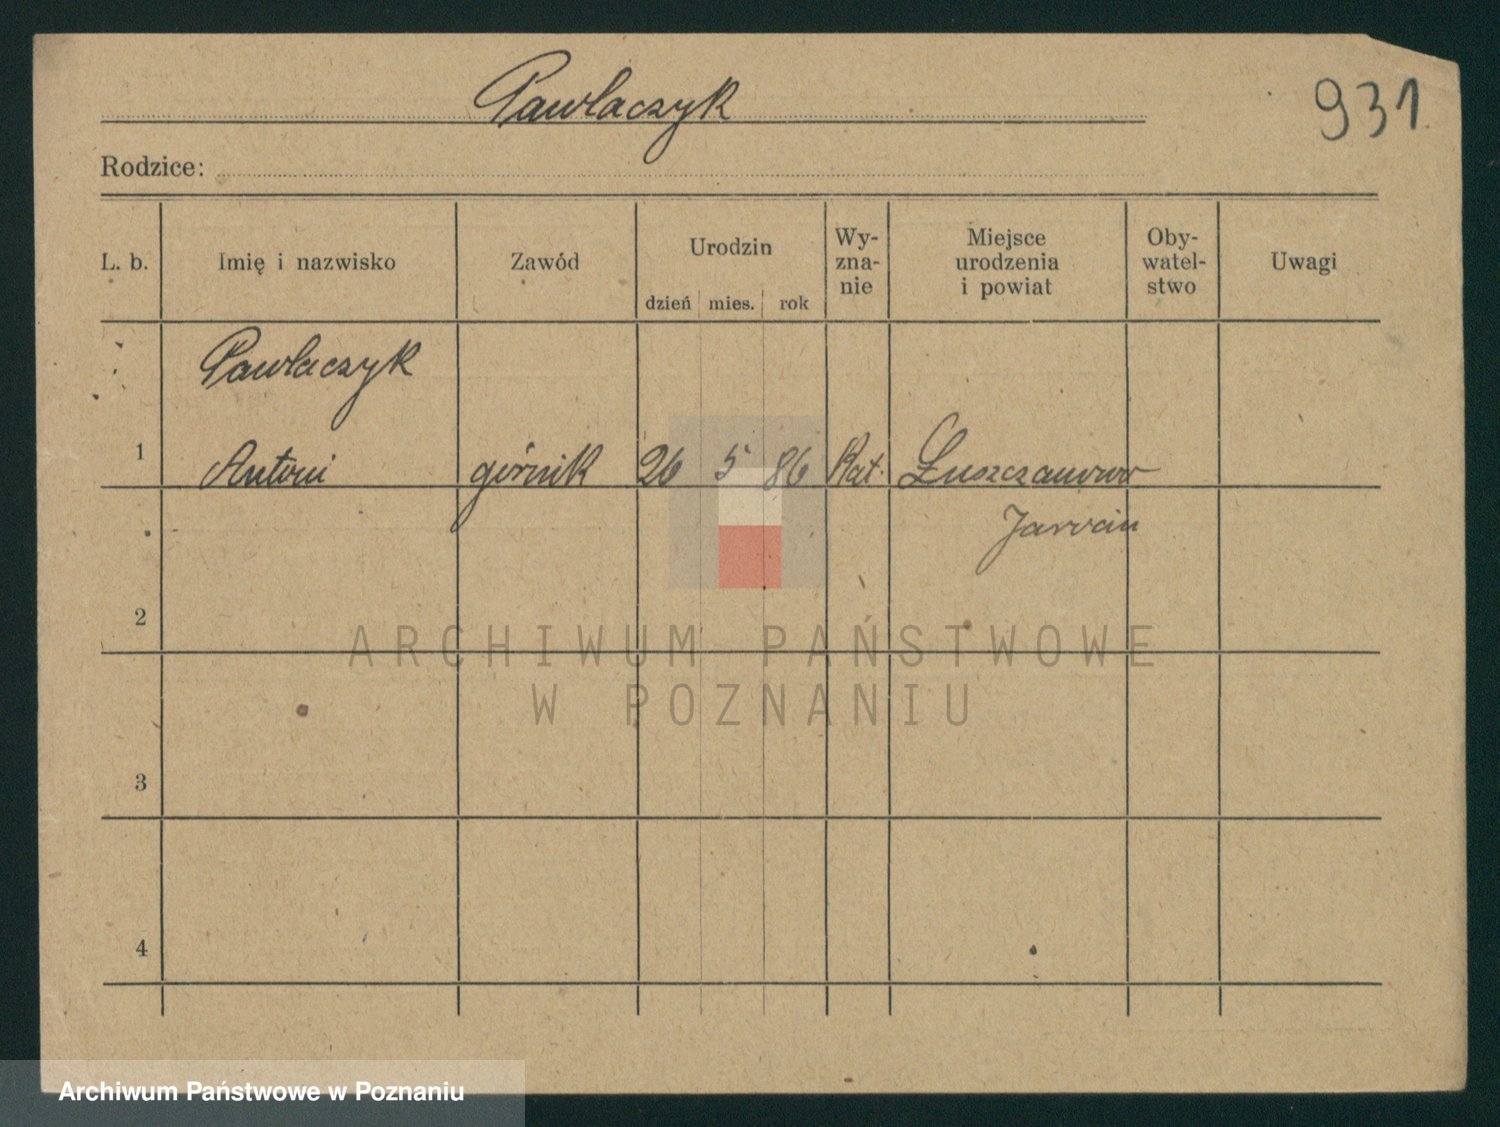 Pawlaczyk
931
Rodzice:
L. b. Imię i nazwisko Zawód Urodzin dzień mies. rok Wy-zna-nie Miejsce urodzenia i powiat Oby-watel-stwo Uwagi
Pawlaczyk
1 Antoni górnik 26 5 86 Kat. Łuszczanowo
Jarocin
2
ARCHIWUM PAŃSTWOWE
W POZNANIU
3
4
Archiwum Państwowe w Poznaniu